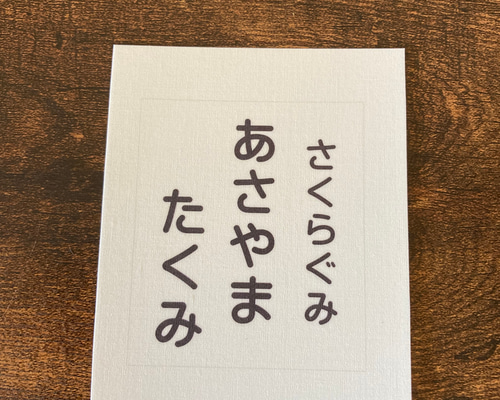 さくらぐみ
あさやま
たくみ